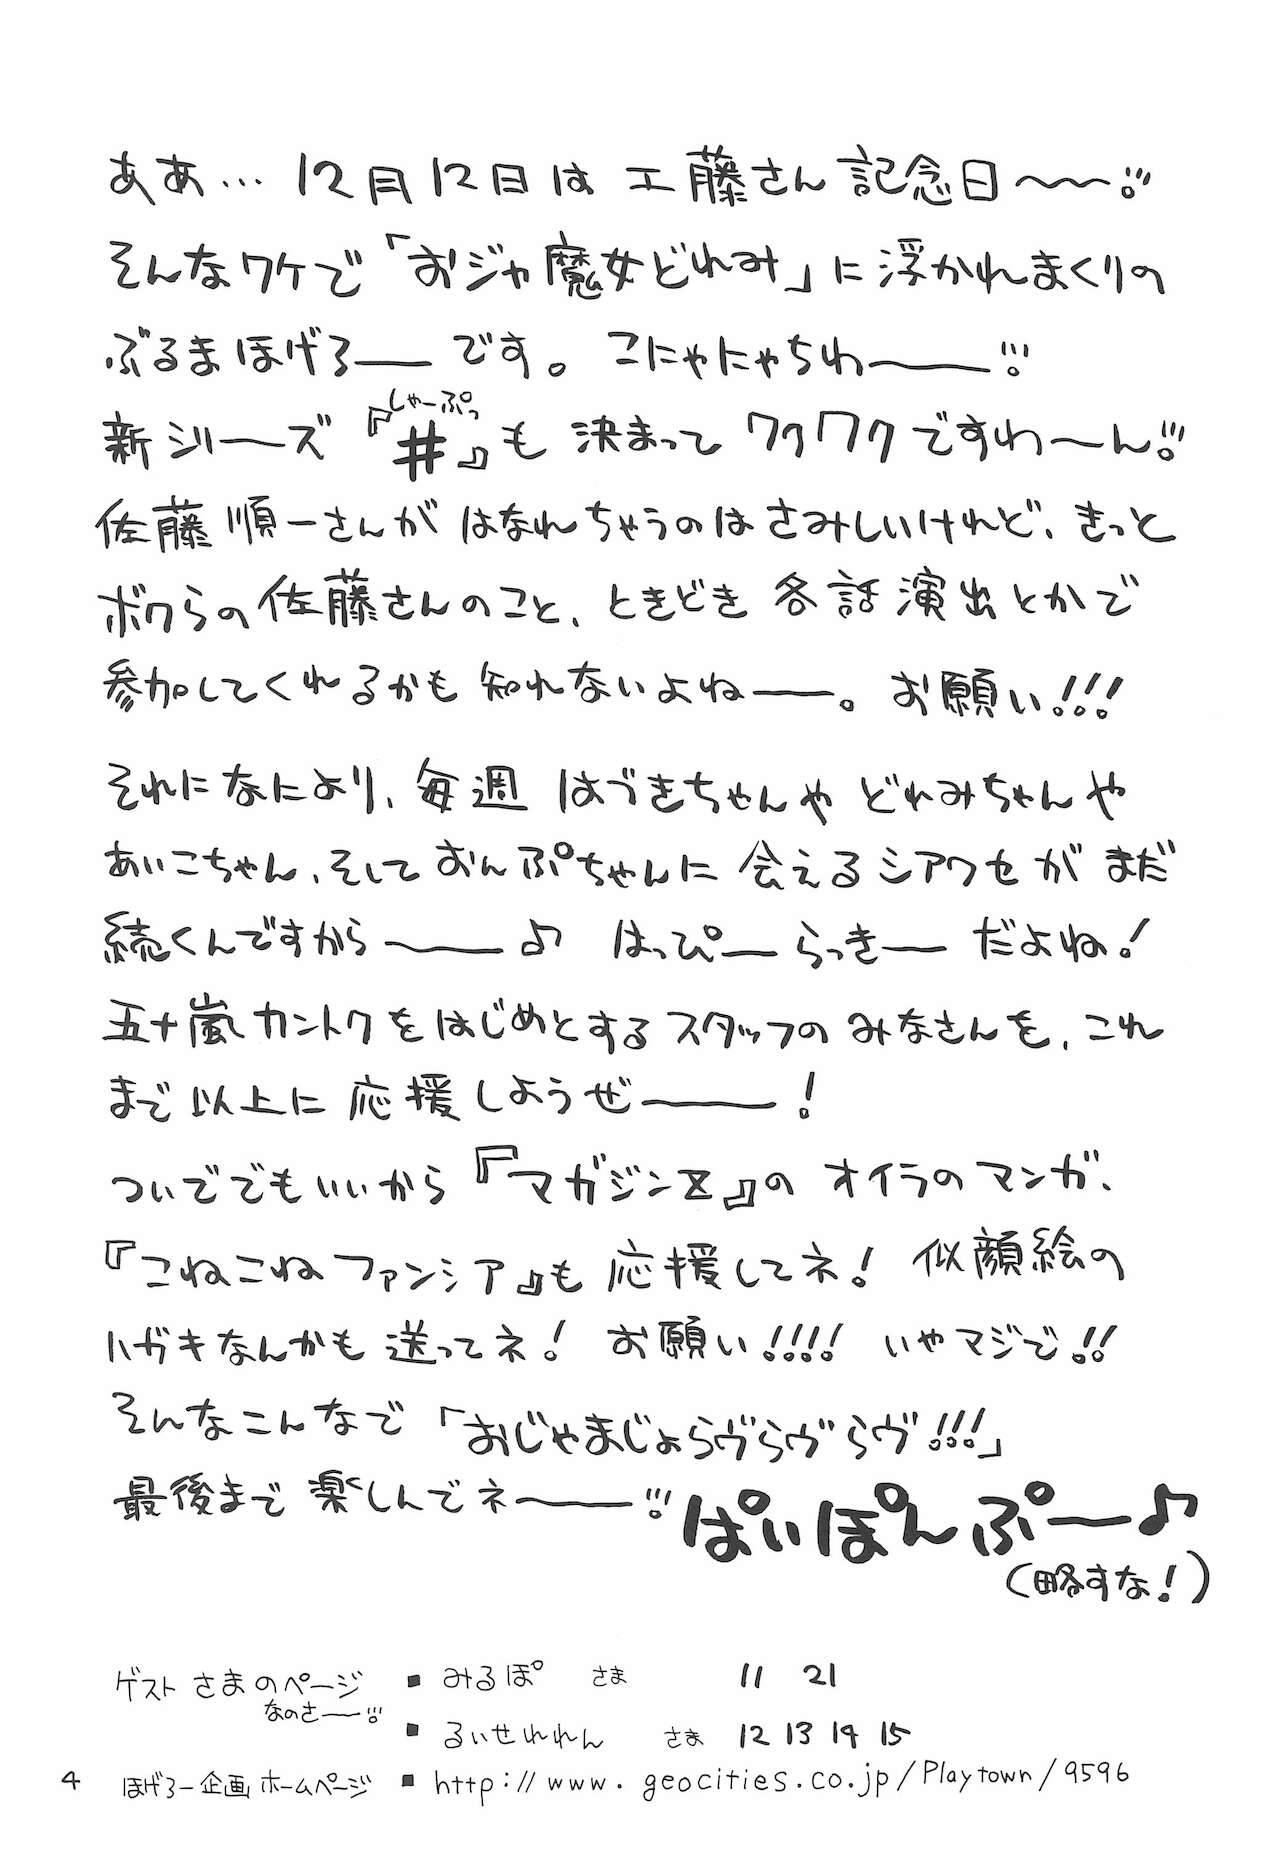 ああ… 12月12日は 工藤さん 記念日〜〜!!!
そんなワケで「おジャ魔女どれみ」に浮かれまくりの
ぶるまほげろー です。 こにゃにゃちわー!!!
新シリーズ『#』も 決まって ワクワクですわ〜ん!!!
しゃーぷっ
佐藤順一さんが はなれちゃうのは さみしいけれど、きっと
ボクらの佐藤さんのこと、ときどき 各話演出とかで
参加してくれるかも 知れないよねー。 お願い!!!
それになにより、毎週 はづきちゃんや どれみちゃんや
あいこちゃん、そして おんぷちゃんに 会えるシアワセが まだ
続くんですからー♪ はっぴー らっきー だよね!
五十嵐カントクをはじめとするスタッフの みなさんを、これ
まで以上に 応援しようぜー!
ついででもいいから『マガジンZ』の オイラのマンガ、
『こねこねファンシア』も 応援してネ! 似顔絵の
ハガキなんかも 送ってネ! お願い!!!! いやマジで!!
そんなこんなで 「おじゃまじょらヴらヴらヴ!!!」
最後まで 楽しんでネー!!! ぱいぽんぷー♪
(略すな!)
ゲストさまのページ ■ みるぽ さま 11 21
なのさー!!!
■ るいせれれん さま 12 13 14 15
4 ほげろー企画ホームページ ■ http://www.geocities.co.jp/Playtown/9596